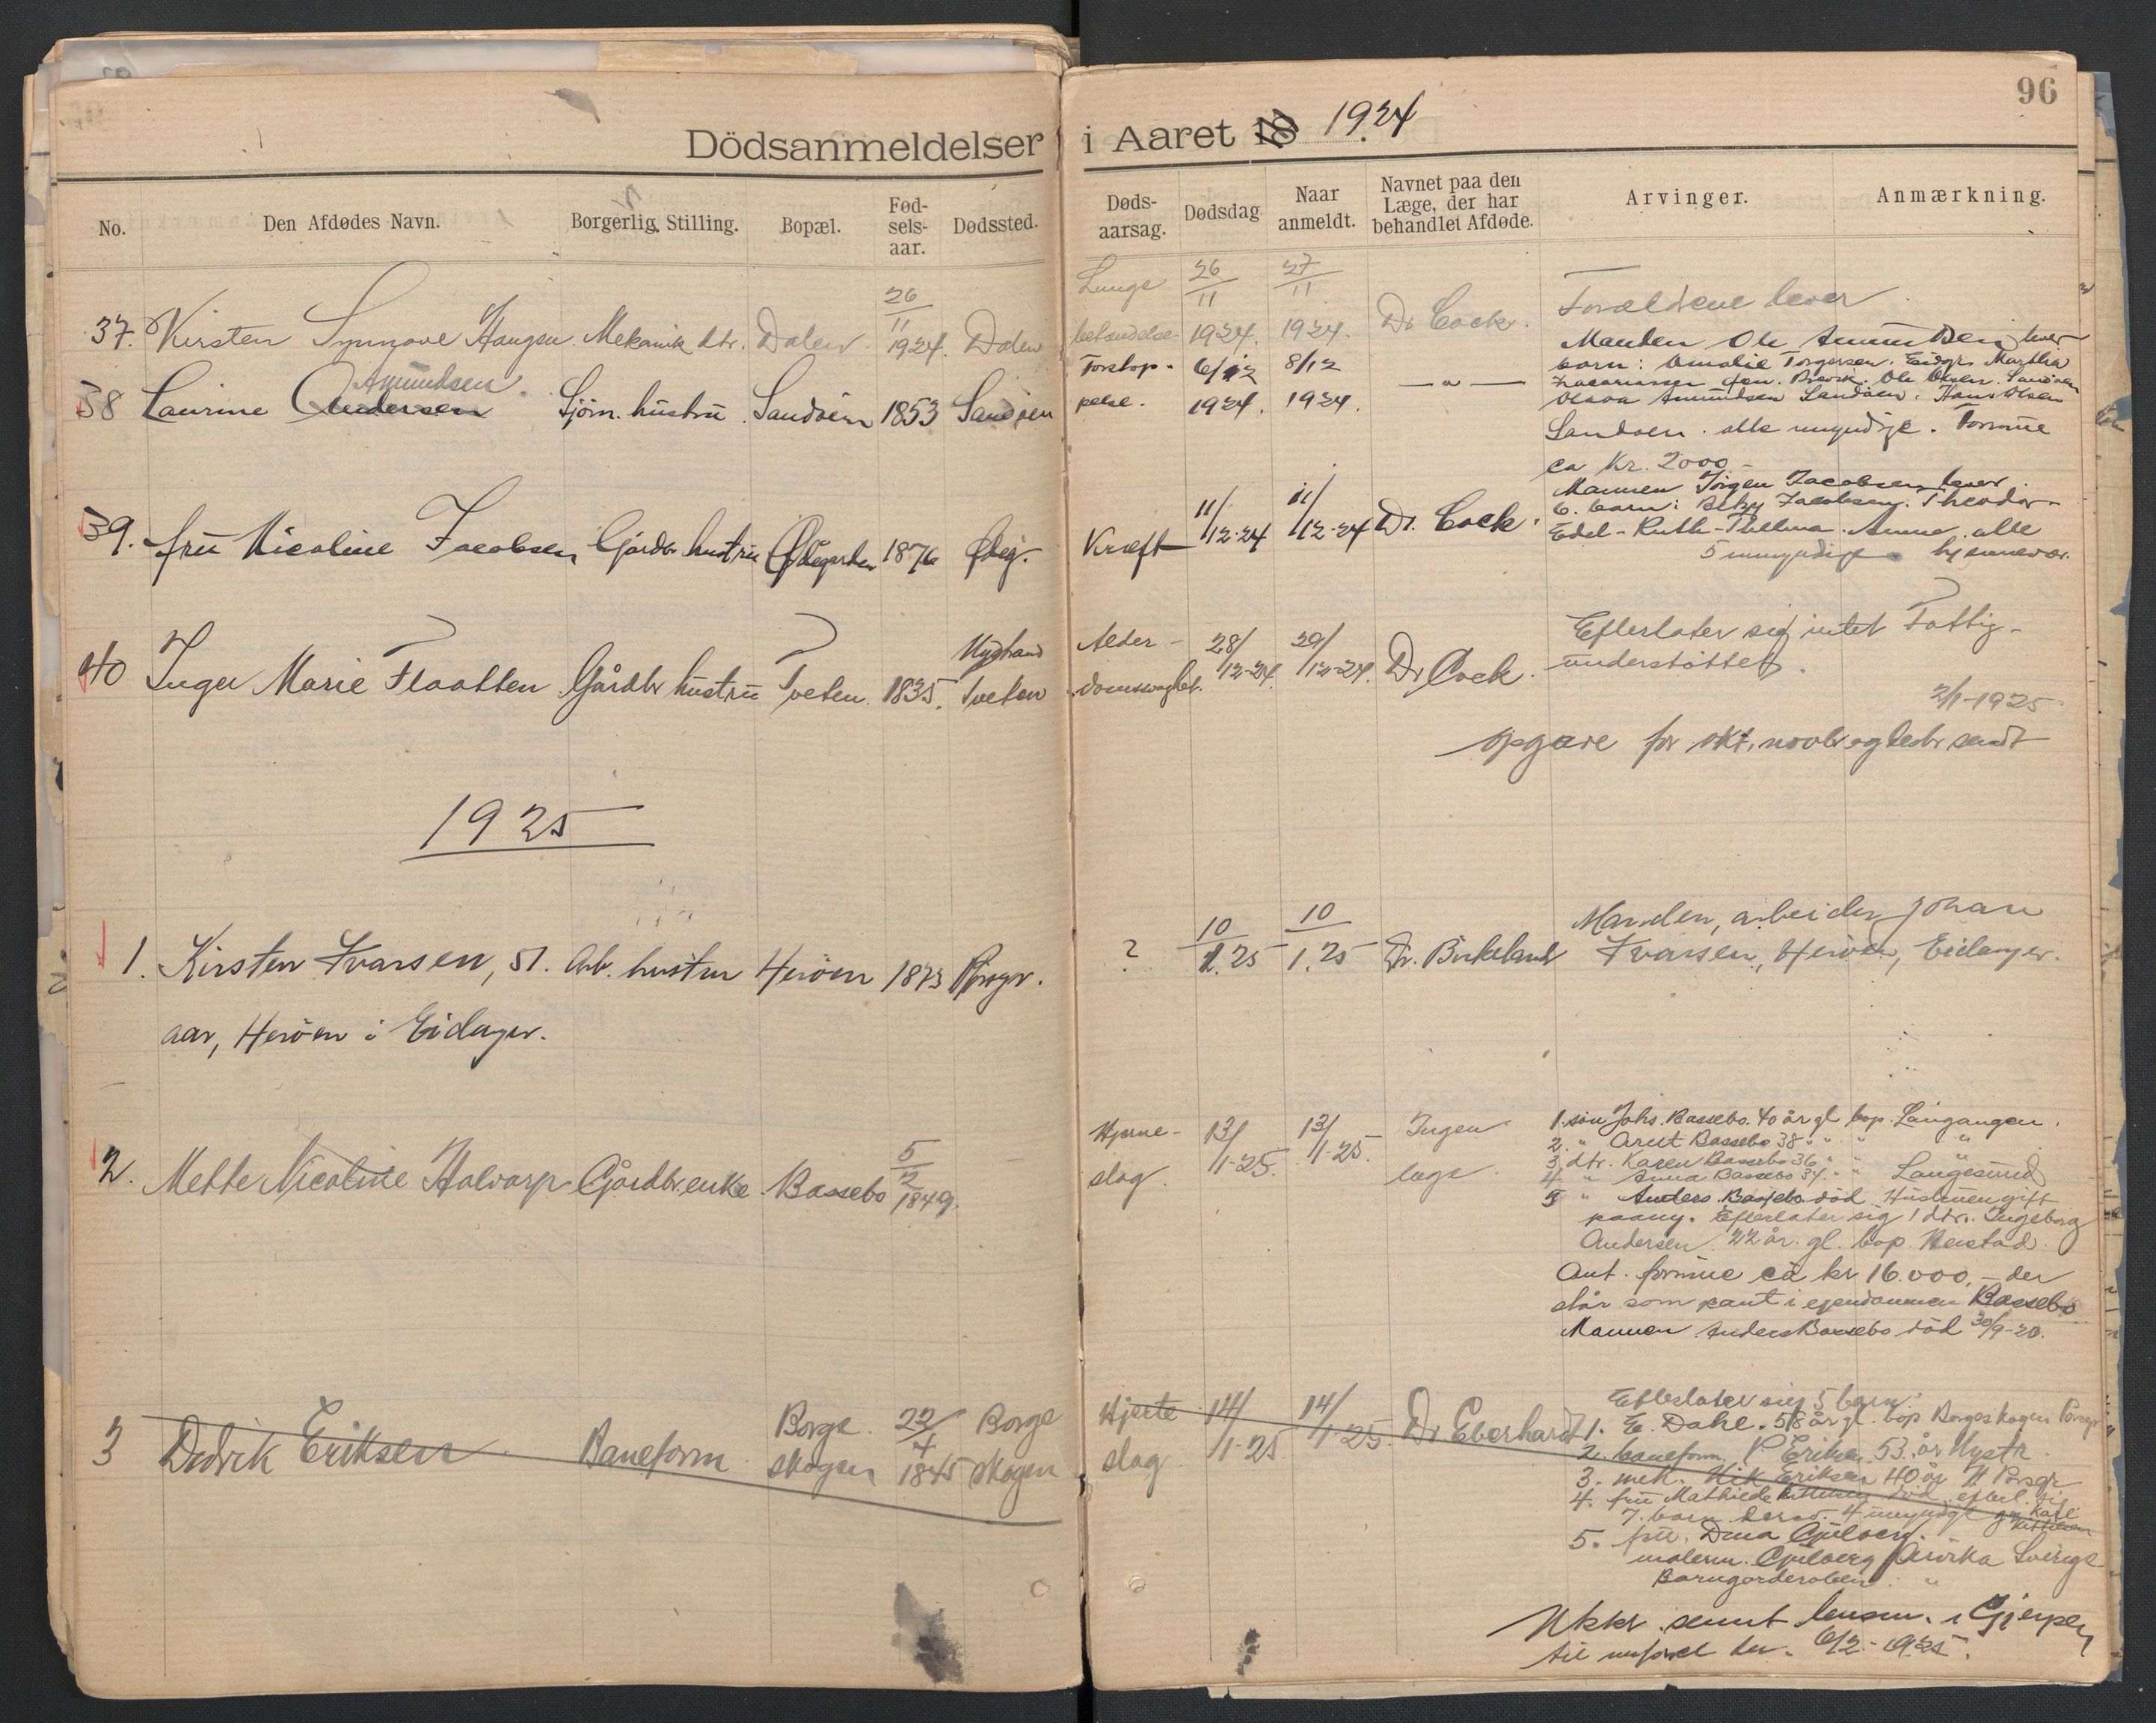 96
Dödsanmeldelser i Aaret 18 1924
No. Den Afdødes Navn. Borgerlig Stilling. Bopæl. Fødselsaar. Dødssted. Dødsaarsag. Dødsdag Naar anmeldt. Navnet paa den Læge, der har behandlet Afdøde. Arvinger. Anmærkning.
37. Kirsten Synnøve Haugen. Mekanik dtr. Dalen 26/11 1924. Dalen
Lunge
betendelse 26/11 1924. 27/11 1924. Dr Cock.
Forældrene lever
38 Laurine Andersen Amundsen Sjöm. hustru Sandöen 1853 Sandöen
Forstop-
pelse. 6/12 1924. 8/12 1924. — " —
Manden Ole Amundsen lever
barn: Amalie Torgersen. Eidgr. Martha
Brevik. Ole Olsen. Sandöen
Olava Amundsen Sandöen. Hans Olsen
Sandöen. alle myndige. Formue
ca Kr. 2000 -
39. fru Nicoline Jacobsen Gårdbr hustru Ødegården 1876 Ødeg.
Kræft 11/12-24 11/12-24 Dr. Cock.
Mannen Jörgen Jacobsen lever.
6. barn: Jacobsen. Theodor-
Edel-Ruth-Thelma. Anna. alle
5 umyndige hjemmevær.
40 Inger Marie Flaatten Gårdbr hustru Tveten. 1835. Nystrand
Tveten
Alder-
domssvaghet. 28/12-24. 29/12-24. Dr Cock.
Efterlater sig intet Fattig-
understöttet.
2/1-1925
Opgave for okt, novbr og desbr sendt
1925
1. Kirsten Ivarsen, 51. Arb. hustru Heröen 1873 Porsgr.
aar, Heröen i Eidanger.
? 10/1.25 10/1.25 Dr. Birkeland
Manden, arbeider Johan
Ivarsen, Heröen, Eidanger.
2. Mette Nicoline Halvorp Gårdbr.enke Bassebo 5/2 1849.
Hjerne-
slag. 13/1-25. 13/1-25. Ingen
læge.
1. sön Johs. Bassebo. 40 år gl bop. Langangen.
2. " Arnt Bassebo 38 " " " "
3. dtr. Karen Bassebo 36 " " "
4. " Anna Bassebo 34. " " Langesund
5 " Anders Bassebo död Hustruen gift
paany. Efterlater sig 1 dtr. Ingeborg
Andersen 22 år. gl. bop. Heistad.
Ant. formue ca kr 16.000,- der
står som pant i ejendommen Bassebo
Mannen Anders Bassebo död 30/9-20.
3 Didrik Eriksen Baneform. Borge
skogen 22/4 1845 Borge
skogen
Hjerte
slag 14/1-25 14/1-25. Dr Eberhardt
Efterlater sig 5 barn:
1. E. Dahl. 58 år gl. bop Borgeskogen Porsgr
2. baneform. Eriksen 53 år Nystr.
3. mek. Nik Eriksen 40 år N Porsgr
4. fru Mathilde Kittilsen död efterl. sig
7. barn herav 4 umyndg Karl
Kittilsen
5. fru. Dina Gjilberg.
malerm. Gjilberg Arvika Sverige
Utskr. sennt lensm. i Gjerpen
til 6/2-1925.